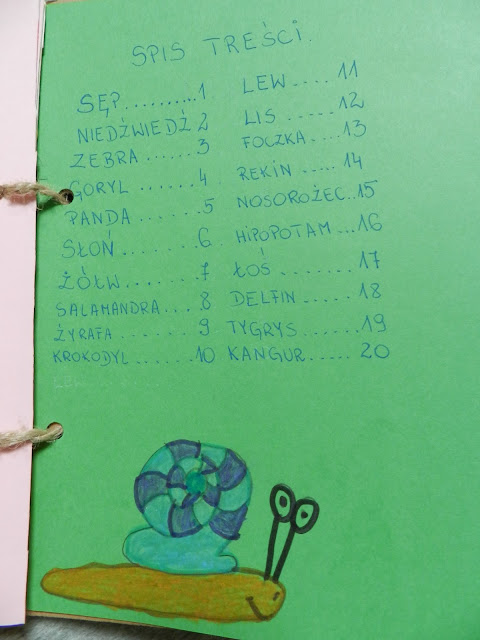 SPIS TREŚCI.
SĘP..........1
NIEDŹWIEDŹ 2
ZEBRA......3
GORYL......4
PANDA......5
SŁOŃ.......6
ŻÓŁW.......7
SALAMANDRA....8
ŻYRAFA........9
KROKODYL......10
LEW........
LEW....11
LIS.....12
FOCZKA...13
REKIN.....14
NOSOROŻEC..15
HIPOPOTAM...16
ŁOŚ........17
DELFIN.....18
TYGRYS......19
KANGUR.....20